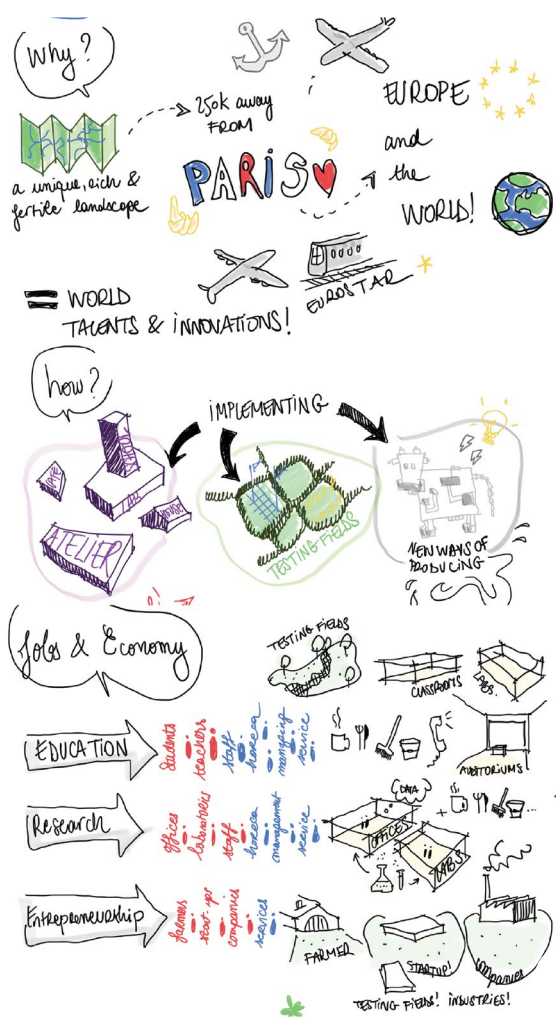 Why?
a unique, rich &
fertile landscape
250k away
FROM
PARIS
EUROPE
and
the
WORLD!
EUROSTAR
= WORLD
TALENTS & INNOVATIONS!
how?
IMPLEMENTING
LABS
ATELIER
TESTING FIELDS
NEW WAYS OF
PRODUCING
Jobs & Economy
TESTING FIELDS
CLASSROOMS
EDUCATION
Students
teachers
staff
horeca
management
service
AUDITORIUMS
Research
offices
laboratories
staff
horeca
management
service
DATA
OFFICES
LABS
Entrepreneurship
farmers
start-ups
companies
services
FARMER
STARTUP!
companies
TESTING FIELDS! INDUSTRIES!